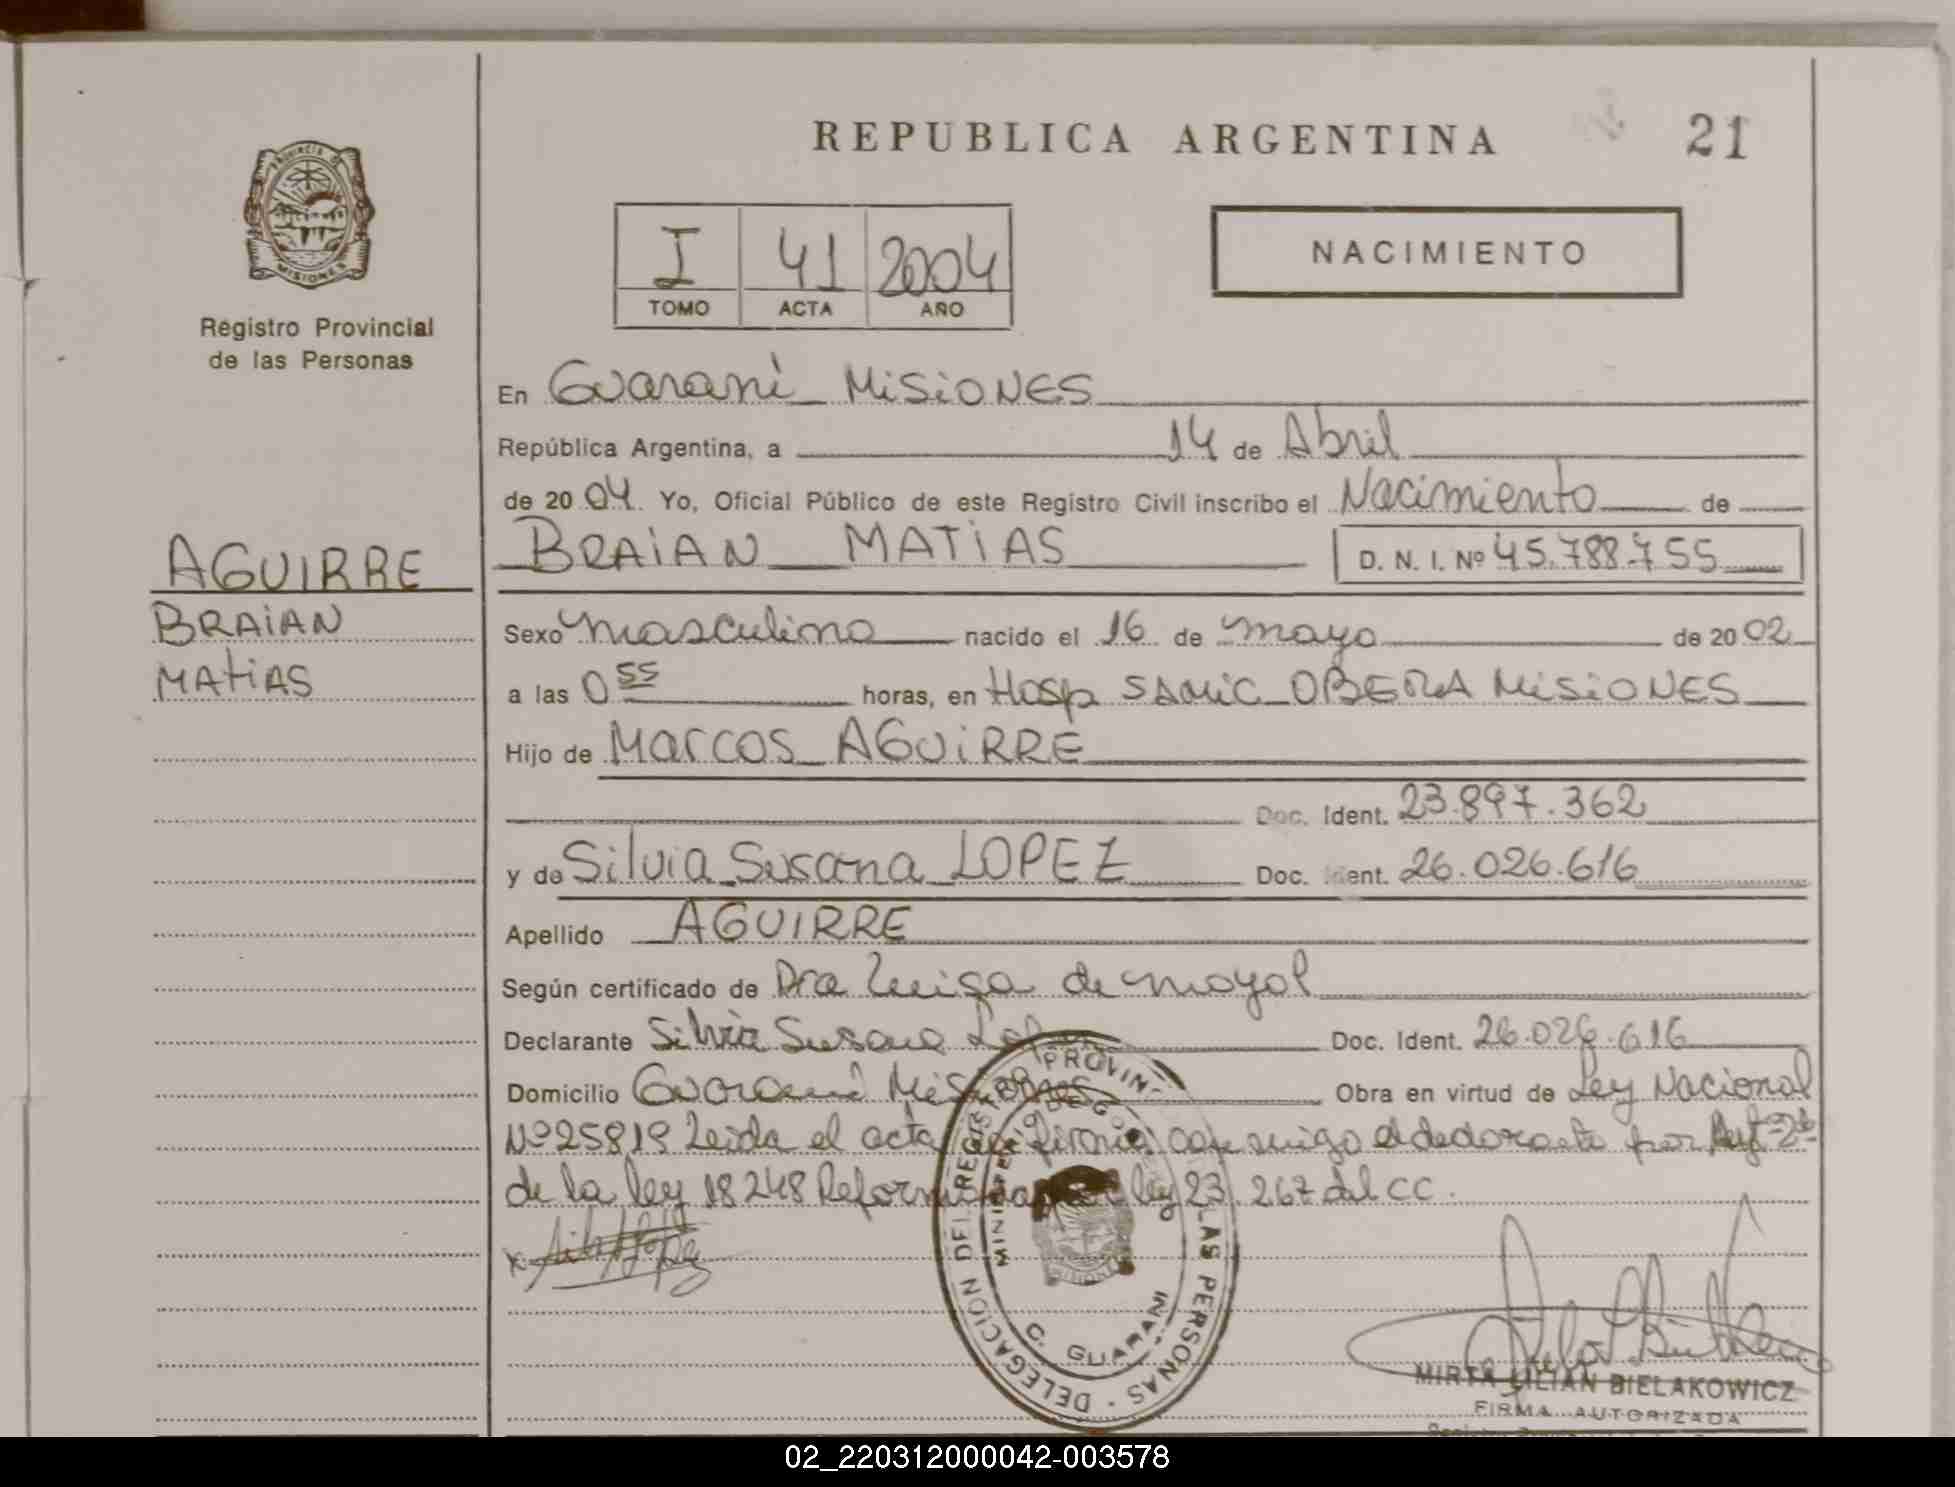 REPUBLICA ARGENTINA 21
PROVINCIA DE
MISIONES
Registro Provincial
de las Personas
I 41 2004
TOMO ACTA AÑO
NACIMIENTO
En Guaraní Misiones
República Argentina, a 14 de Abril
de 2004 Yo, Oficial Público de este Registro Civil inscribo el Nacimiento de
BRAIAN MATIAS D. N. I. Nº 45.788.755
AGUIRRE
BRAIAN
MATIAS
Sexo masculino nacido el 16 de mayo de 2002
a las 0 55 horas, en Hosp SAMIC OBERA MISIONES
Hijo de Marcos AGUIRRE
Doc. Ident. 23.897.362
y de Silvia Susana LOPEZ Doc. Ident. 26.026.616
Apellido AGUIRRE
Según certificado de Dra Luisa de moyol
Declarante Silvia Susana Lop Doc. Ident. 26.026.616
Domicilio Guaraní Misiones Obra en virtud de Ley Nacional
Nº 25819 Leida el acta firma conmigo el declarante por Art
de la ley 18248 Reformada ley 23.267 del CC.
DELEGACION DEL REGISTRO PROVINC LAS PERSONAS
MINISTE DE G
C. GUARANI
MIRTA LILIAN BIELAKOWICZ
FIRMA AUTORIZADA
02_220312000042-003578